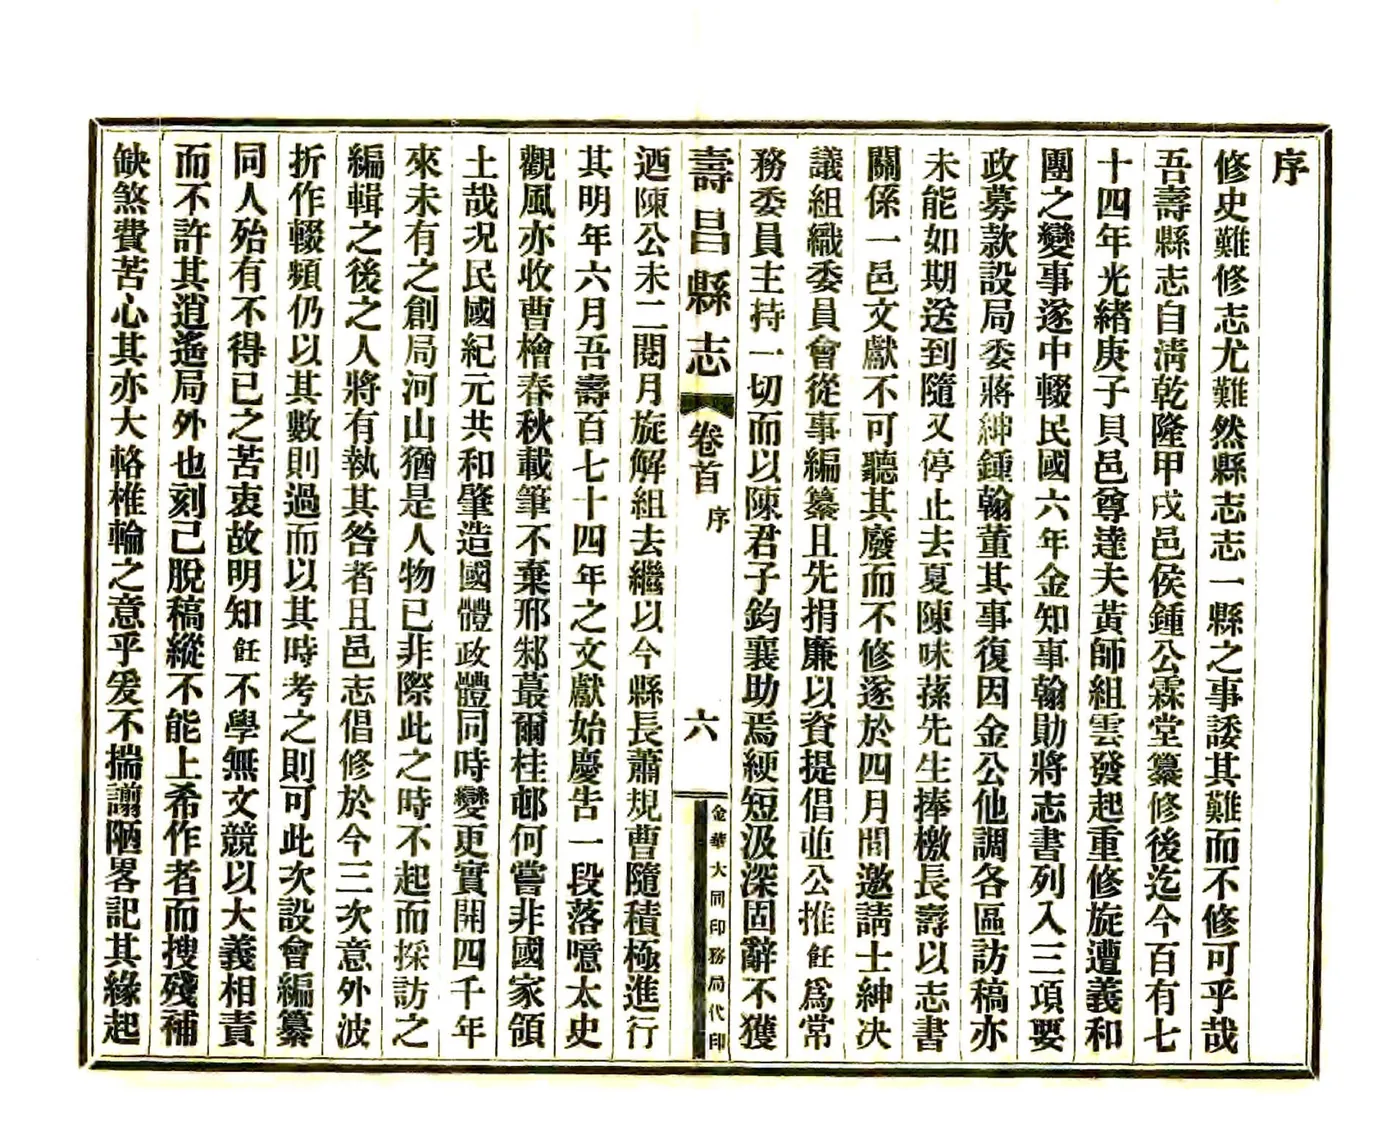 序
修史難修志尤難然縣志志一縣之事諉其難而不修可乎哉
吾壽縣志自清乾隆甲戌邑侯鍾公霖堂纂修後迄今百有七
十四年光緒庚子貝邑尊達夫黃師組雲發起重修旋遭義和
團之變事遂中輟民國六年金知事翰勛將志書列入三項要
政募款設局委蔣紳鍾翰董其事復因金公他調各區訪稿亦
未能如期送到隨又停止去夏陳咮蓀先生捧檄長壽以志書
關係一邑文獻不可聽其廢而不修遂於四月間邀請士紳決
議組織委員會從事編纂且先捐廉以資提倡並公推飪爲常
務委員主持一切而以陳君子鈞襄助焉綆短汲深固辭不獲
壽昌縣志
卷首
序
六
金華大同印務局代印
迺陳公未二閱月旋解組去繼以今縣長蕭規曹隨積極進行
其明年六月吾壽百七十四年之文獻始慶告一段落噫太史
觀風亦收曹檜春秋載筆不棄邢邾蕞爾桂邨何嘗非國家領
土哉况民國紀元共和肇造國體政體同時變更實開四千年
來未有之創局河山猶是人物已非際此之時不起而採訪之
編輯之後之人將有執其咎者且邑志倡修於今三次意外波
折作輟頻仍以其數則過而以其時考之則可此次設會編纂
同人殆有不得已之苦衷故明知飪不學無文競以大義相責
而不許其逍遙局外也刻己脫稿縱不能上希作者而搜殘補
缺煞費苦心其亦大輅椎輪之意乎爰不揣謭陋畧記其緣起